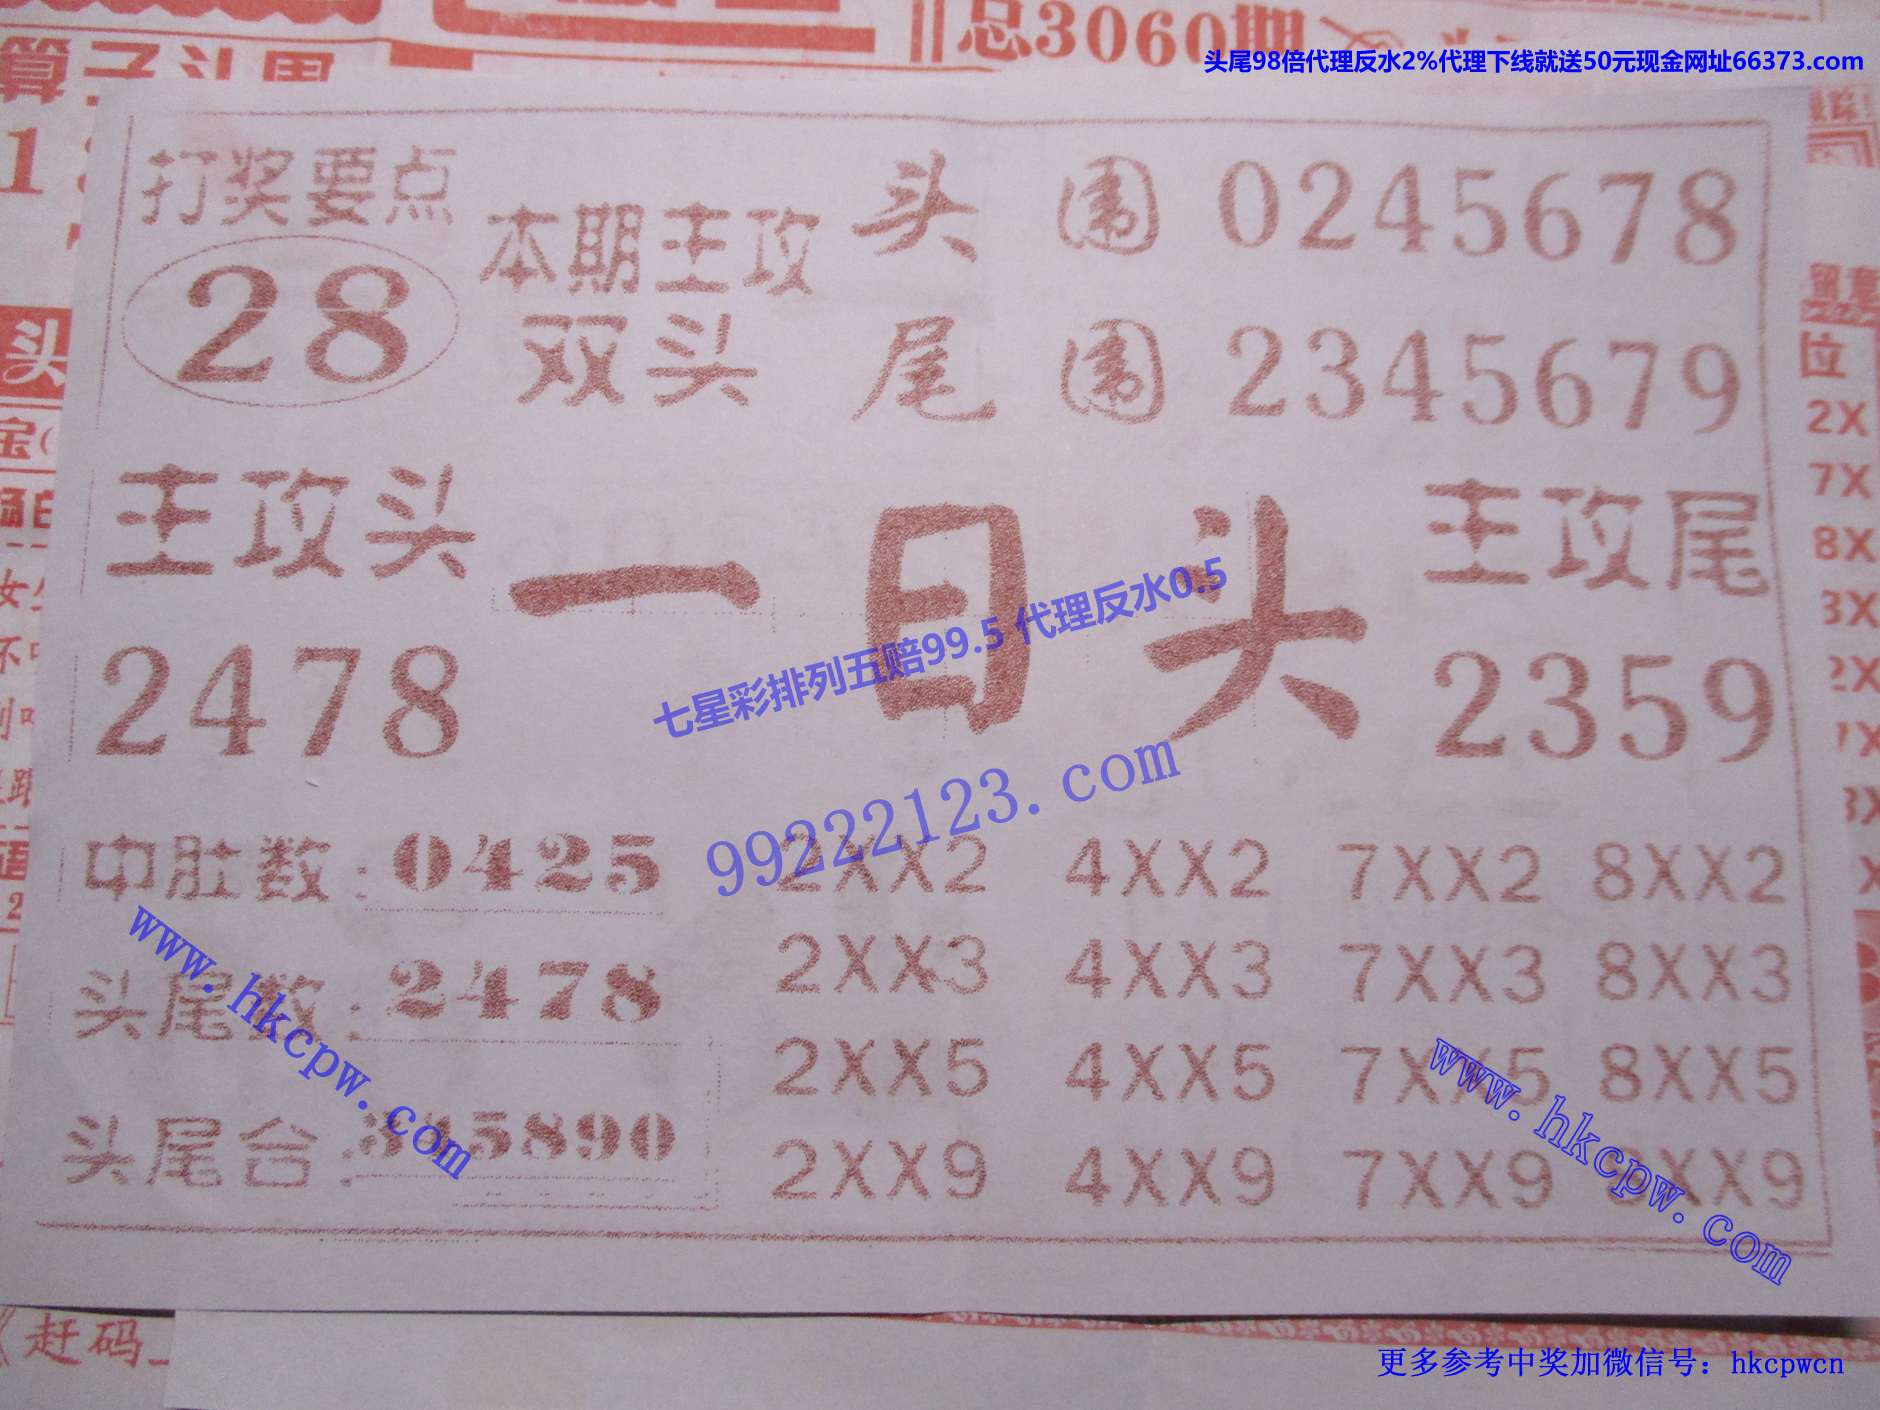 总3060期
头尾98倍代理反水2%代理下线就送50元现金网址66373.com
打奖要点
28
本期主攻
双头
头 围 0245678
尾 围 2345679
主攻头
2478
一日头
主攻尾
2359
七星彩排列五赔99.5 代理反水0.5
99222123.com
中肚数：0425
头尾数：2478
头尾合：345890
2XX2 4XX2 7XX2 8XX2
2XX3 4XX3 7XX3 8XX3
2XX5 4XX5 7XX5 8XX5
2XX9 4XX9 7XX9 8XX9
www.hkcpw.com
www.hkcpw.com
头
位
2X
7X
8X
3X
2X
赶码
更多参考中奖加微信号：hkcpwcn